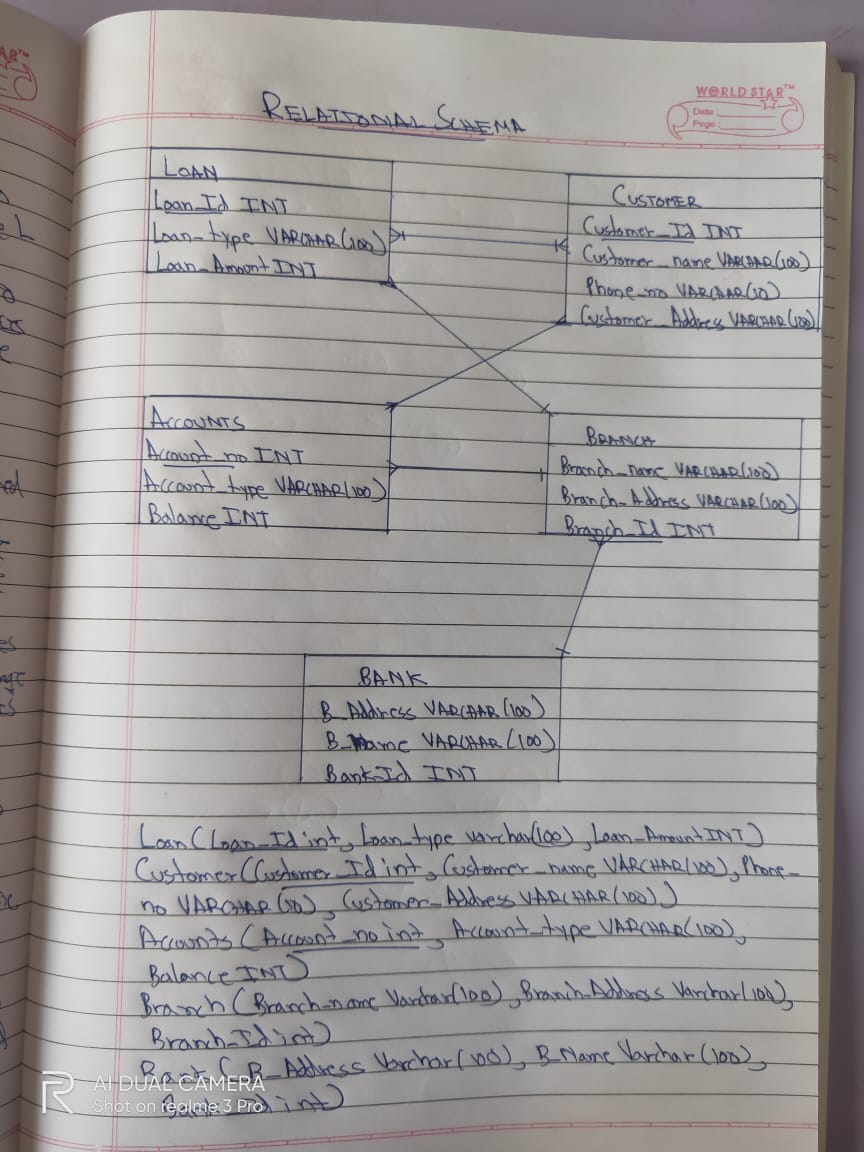 WORLD STAR™
Date :
Page :
RELATIONAL SCHEMA
LOAN
Loan_Id INT
Loan_type VARCHAR(100)
Loan_Amount INT
CUSTOMER
Customer_Id INT
Customer_name VARCHAR(100)
Phone_no VARCHAR(10)
Customer_Address VARCHAR(100)
ACCOUNTS
Account_no INT
Account_type VARCHAR(100)
Balance INT
BRANCH
Branch_name VARCHAR(100)
Branch_Address VARCHAR(100)
Branch_Id INT
BANK
B_Address VARCHAR(100)
B_Name VARCHAR(100)
Bank_Id INT
Loan(Loan_Id int, Loan_type varchar(100), Loan_Amount INT)
Customer(Customer_Id int, Customer_name VARCHAR(100), Phone_
no VARCHAR(10), Customer_Address VARCHAR(100))
Accounts(Account_no int, Account_type VARCHAR(100),
Balance INT)
Branch(Branch_name Varchar(100), Branch_Address Varchar(100),
Branch_Id int)
Bank(B_Address Varchar(100), B_Name Varchar(100),
Bank_Id int)
AI DUAL CAMERA
Shot on realme 3 Pro